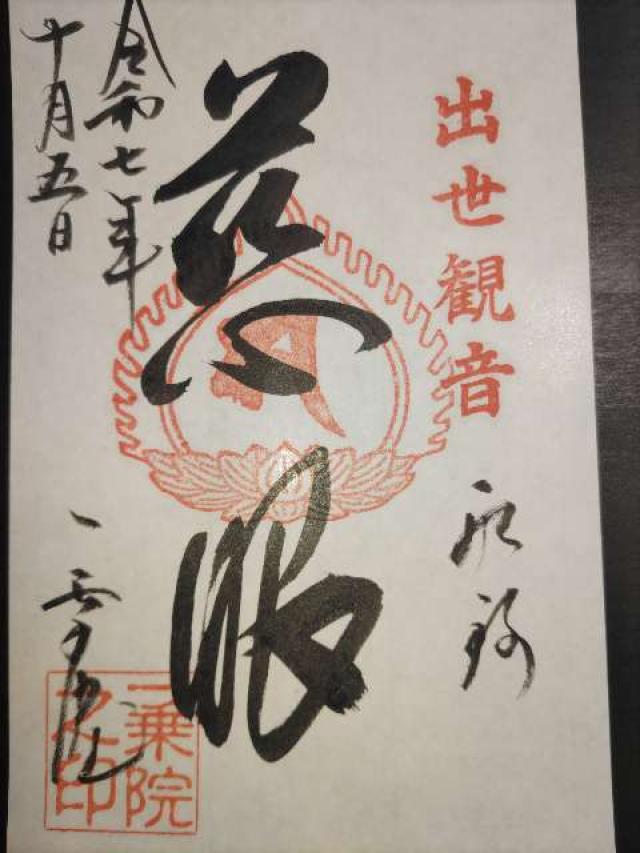 出世観音
慈眼
令和七年
十月五日
一乗院
一乗院
之印